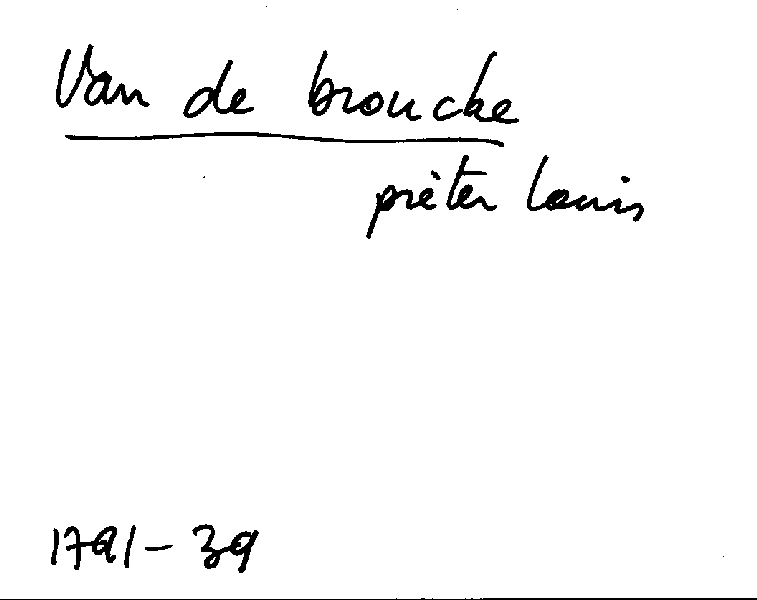 Van de broucke
pièter Louis
1791 - 39